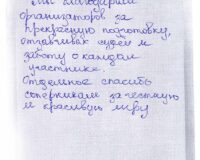 Мы благодарим
организаторов за
прекрасную подготовку,
отзывчивых судей и
заботу о каждом
участнике.
Отдельное спасибо
соперникам за честную
и красивую игру